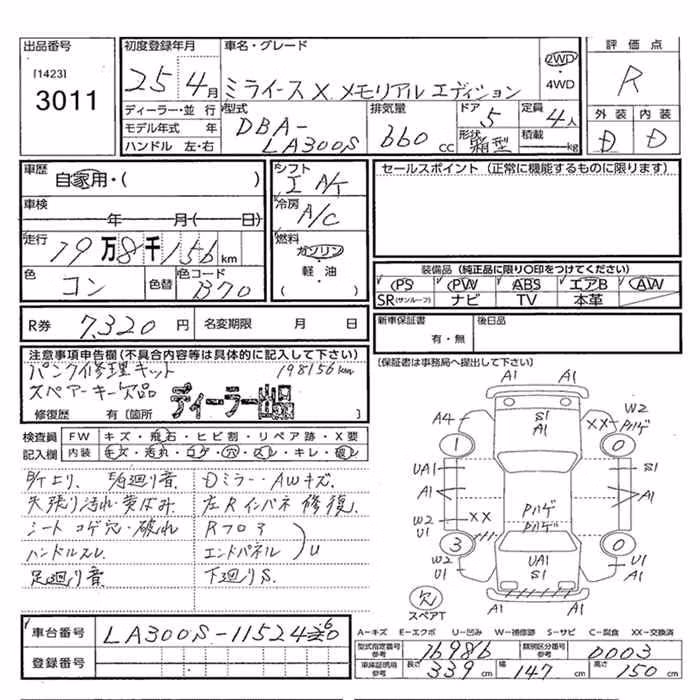 出品番号
[1423]
3011
初度登録年月
25年 4月
車名・グレード
ミライース X メモリアル エディション
2WD
・
4WD
評価点
R
外装 内装
D D
ディーラー・並行
モデル年式 年
ハンドル 左・右
型式
DBA-
LA300S
排気量
660 cc
ドア 5
形状 箱型
定員 4人
積載 kg
車歴
自家用・( )
車検
年 月( 日)
走行
19万8千156km
色
コン
色替
色コード
B70
シフト
I A/T
冷房
A/C
燃料
ガソリン
・
軽・油
( )
セールスポイント(正常に機能するものに限ります)
装備品(純正品に限り○印をつけてください)
PS PW ABS エアB AW
SR(サンルーフ) ナビ TV 本革
R券 7,320円 名変期限 月 日
新車保証書
有・無
後日品
注意事項申告欄(不具合内容等は具体的に記入して下さい)
パンク修理キット 198156km
スペアーキー欠品
ディーラー出品
修復歴 有(箇所 )
(保証書は事務局へ提出して下さい)
検査員 FW キズ・飛石・ヒビ割・リペア跡・X要
記入欄 内装 キズ・汚れ・コゲ・穴・スレ・キレ・破レ
Dミラー・AWキズ
天張り汚れ・黄ばみ 左Rインパネ修復
シート コゲ穴・破れ Rフロア
ハンドルスレ エンドパネル U
足廻り音 下廻りS
A1 A1
S1
A1
A4 XX W2 パハゲ
1 0
UA1 S1
A1 A1
W2 XX パハゲ
パハゲ
U1 3 0 U1
W2 A1
UA1
S1
欠
スペアT
A1 A1
車台番号 LA300S-1152460
登録番号
A-キズ E-エクボ U-凹み W-補修跡 S-サビ C-腐食 XX-交換済
型式指定番号 参考 16986 類別区分番号 参考 0003
車庫証明用 参考 長さ 339cm 幅 147cm 高さ 150cm